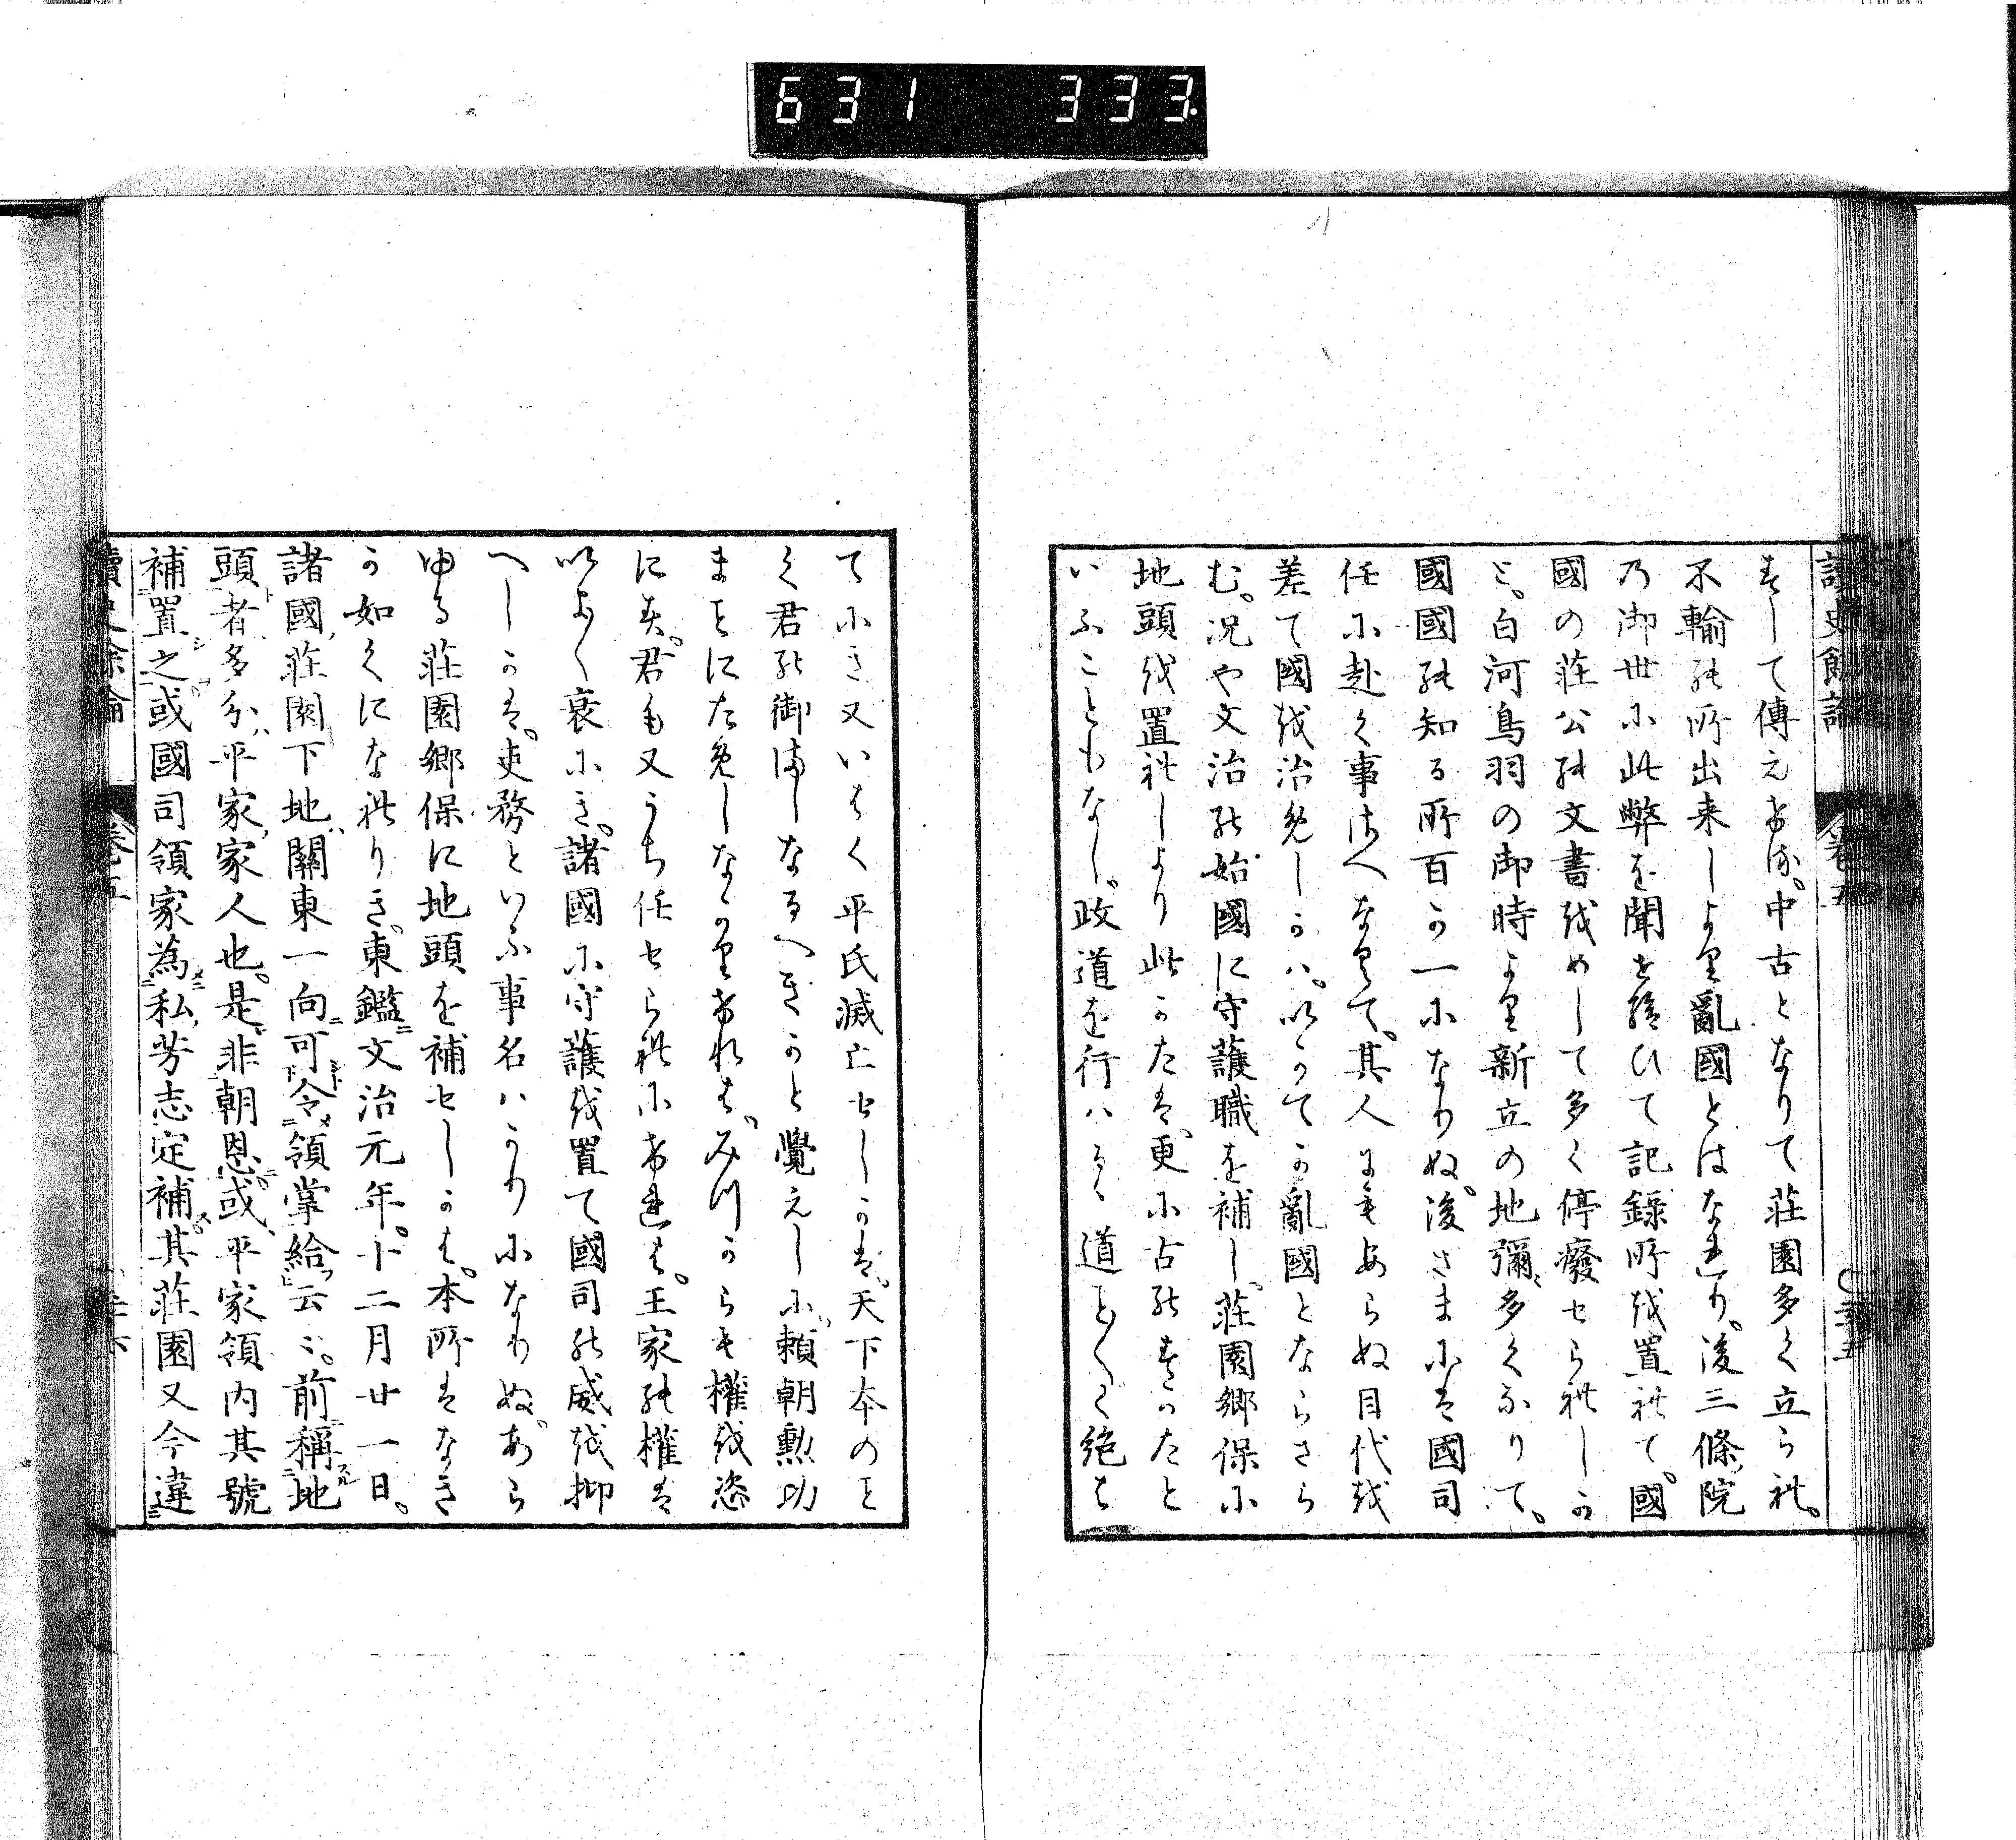 631 333
讀史餘論 卷五
すして傳えける。中古となりて荘園多く立られ。
不輸の所出来しより亂國とはなれり。後三條院
乃御世に此弊を聞せ給ひて記録所を置れて。國
國の荘公の文書をめして多く停癈せられしか
と。白河鳥羽の御時より新立の地彌多くなりて。
國國の知る所百か一になりぬ。後さまには國司
任に赴く事さへなくて。其人にもあらぬ目代を
差て國を治めしかハ。いかてか亂國とならさら
む。况や文治の始國に守護職を補し。荘園郷保に
地頭を置れしより此かたは。更に古のすかたと
いふこともなし。政道を行ハるゝ道ことくく絶は
てにき又いはく平氏滅亡せしかは。天下本のこと
く君の御まゝなるへきかと覺えしに。頼朝勲功
まことにためしなかりけれは。みつからも權を恣
にす。君も又うち任せられにけれは。王家の權は
いよく衰にき。諸國に守護を置て國司の威を抑
へしかは。吏務といふ事名ハかりになりぬ。あら
ゆる荘園郷保に地頭を補せしかは。本所はなき
か如くになれりき。東鑑文治元年。十二月廿一日。
諸國荘園下地。關東一向可令領掌給云々。前稱地
頭者多分平家家人也。是非朝恩。或平家領内其號
補置之或國司領家為私芳志定補其荘園又今違
讀史餘論 卷五